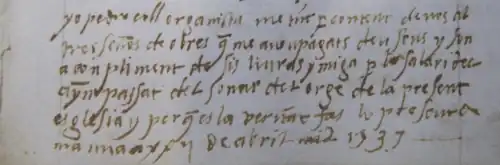 yo pedro coll organista me tinc per content de vos al
tres señors de obres q me aveu pagats deu sous y son
a conpliment de sis liuras y miga p lo salari del
any passat del sonar del orge de la present
esglesia y per q es la veritat fas lo present
ma a xx de abril 1537